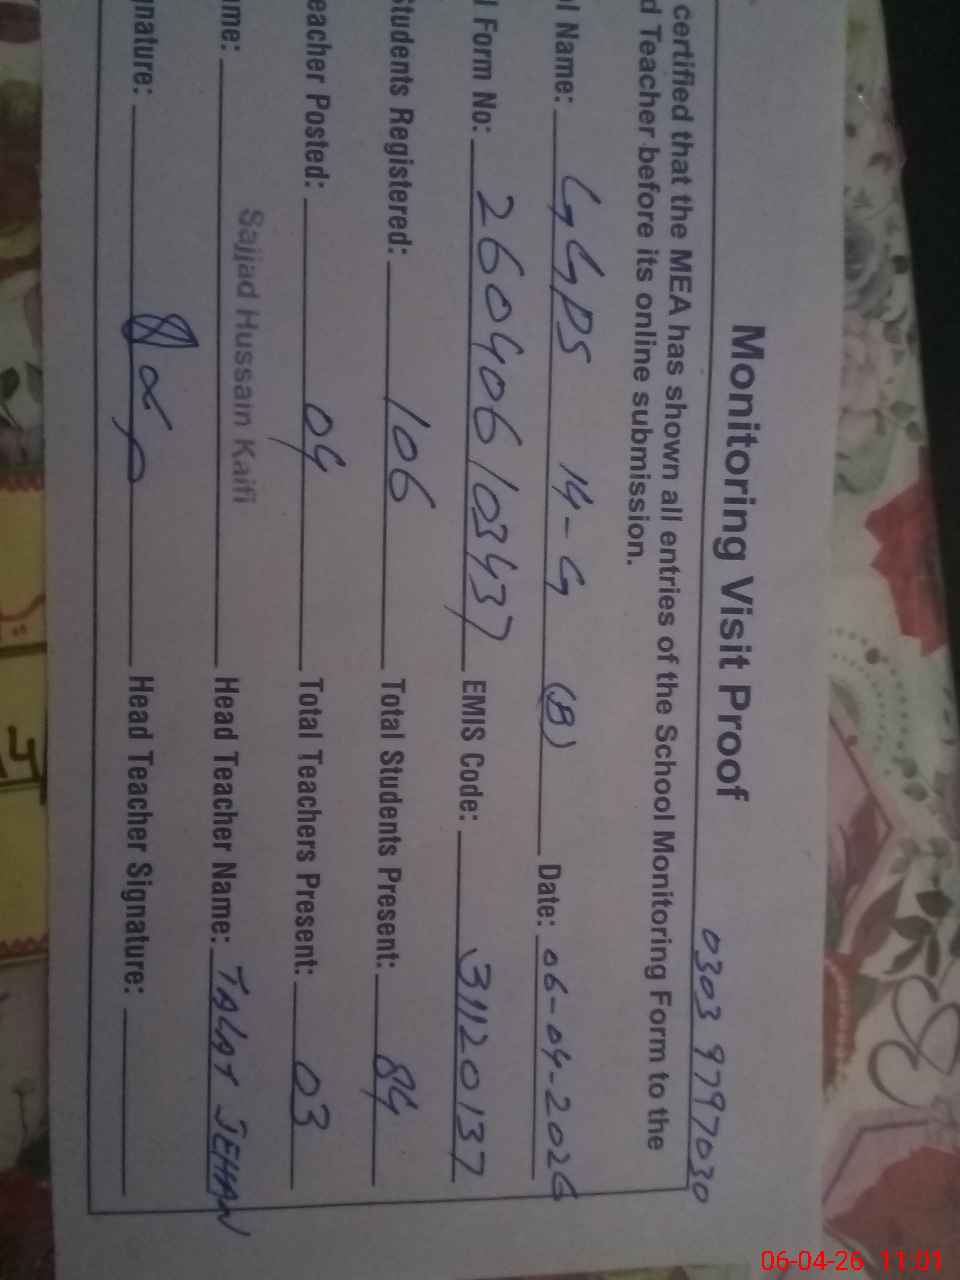 Monitoring Visit Proof
0303 9797030
certified that the MEA has shown all entries of the School Monitoring Form to the
d Teacher before its online submission.
l Name: GGPS 14-G (B) Date: 06-04-2026
l Form No: 2604061034 37 EMIS Code: 31120137
Students Registered: 106 Total Students Present: 84
eacher Posted: 04 Total Teachers Present: 03
ame: Sajjad Hussain Kaifi Head Teacher Name: TALAT JEHAN
gnature: Head Teacher Signature:
06-04-26 11:01